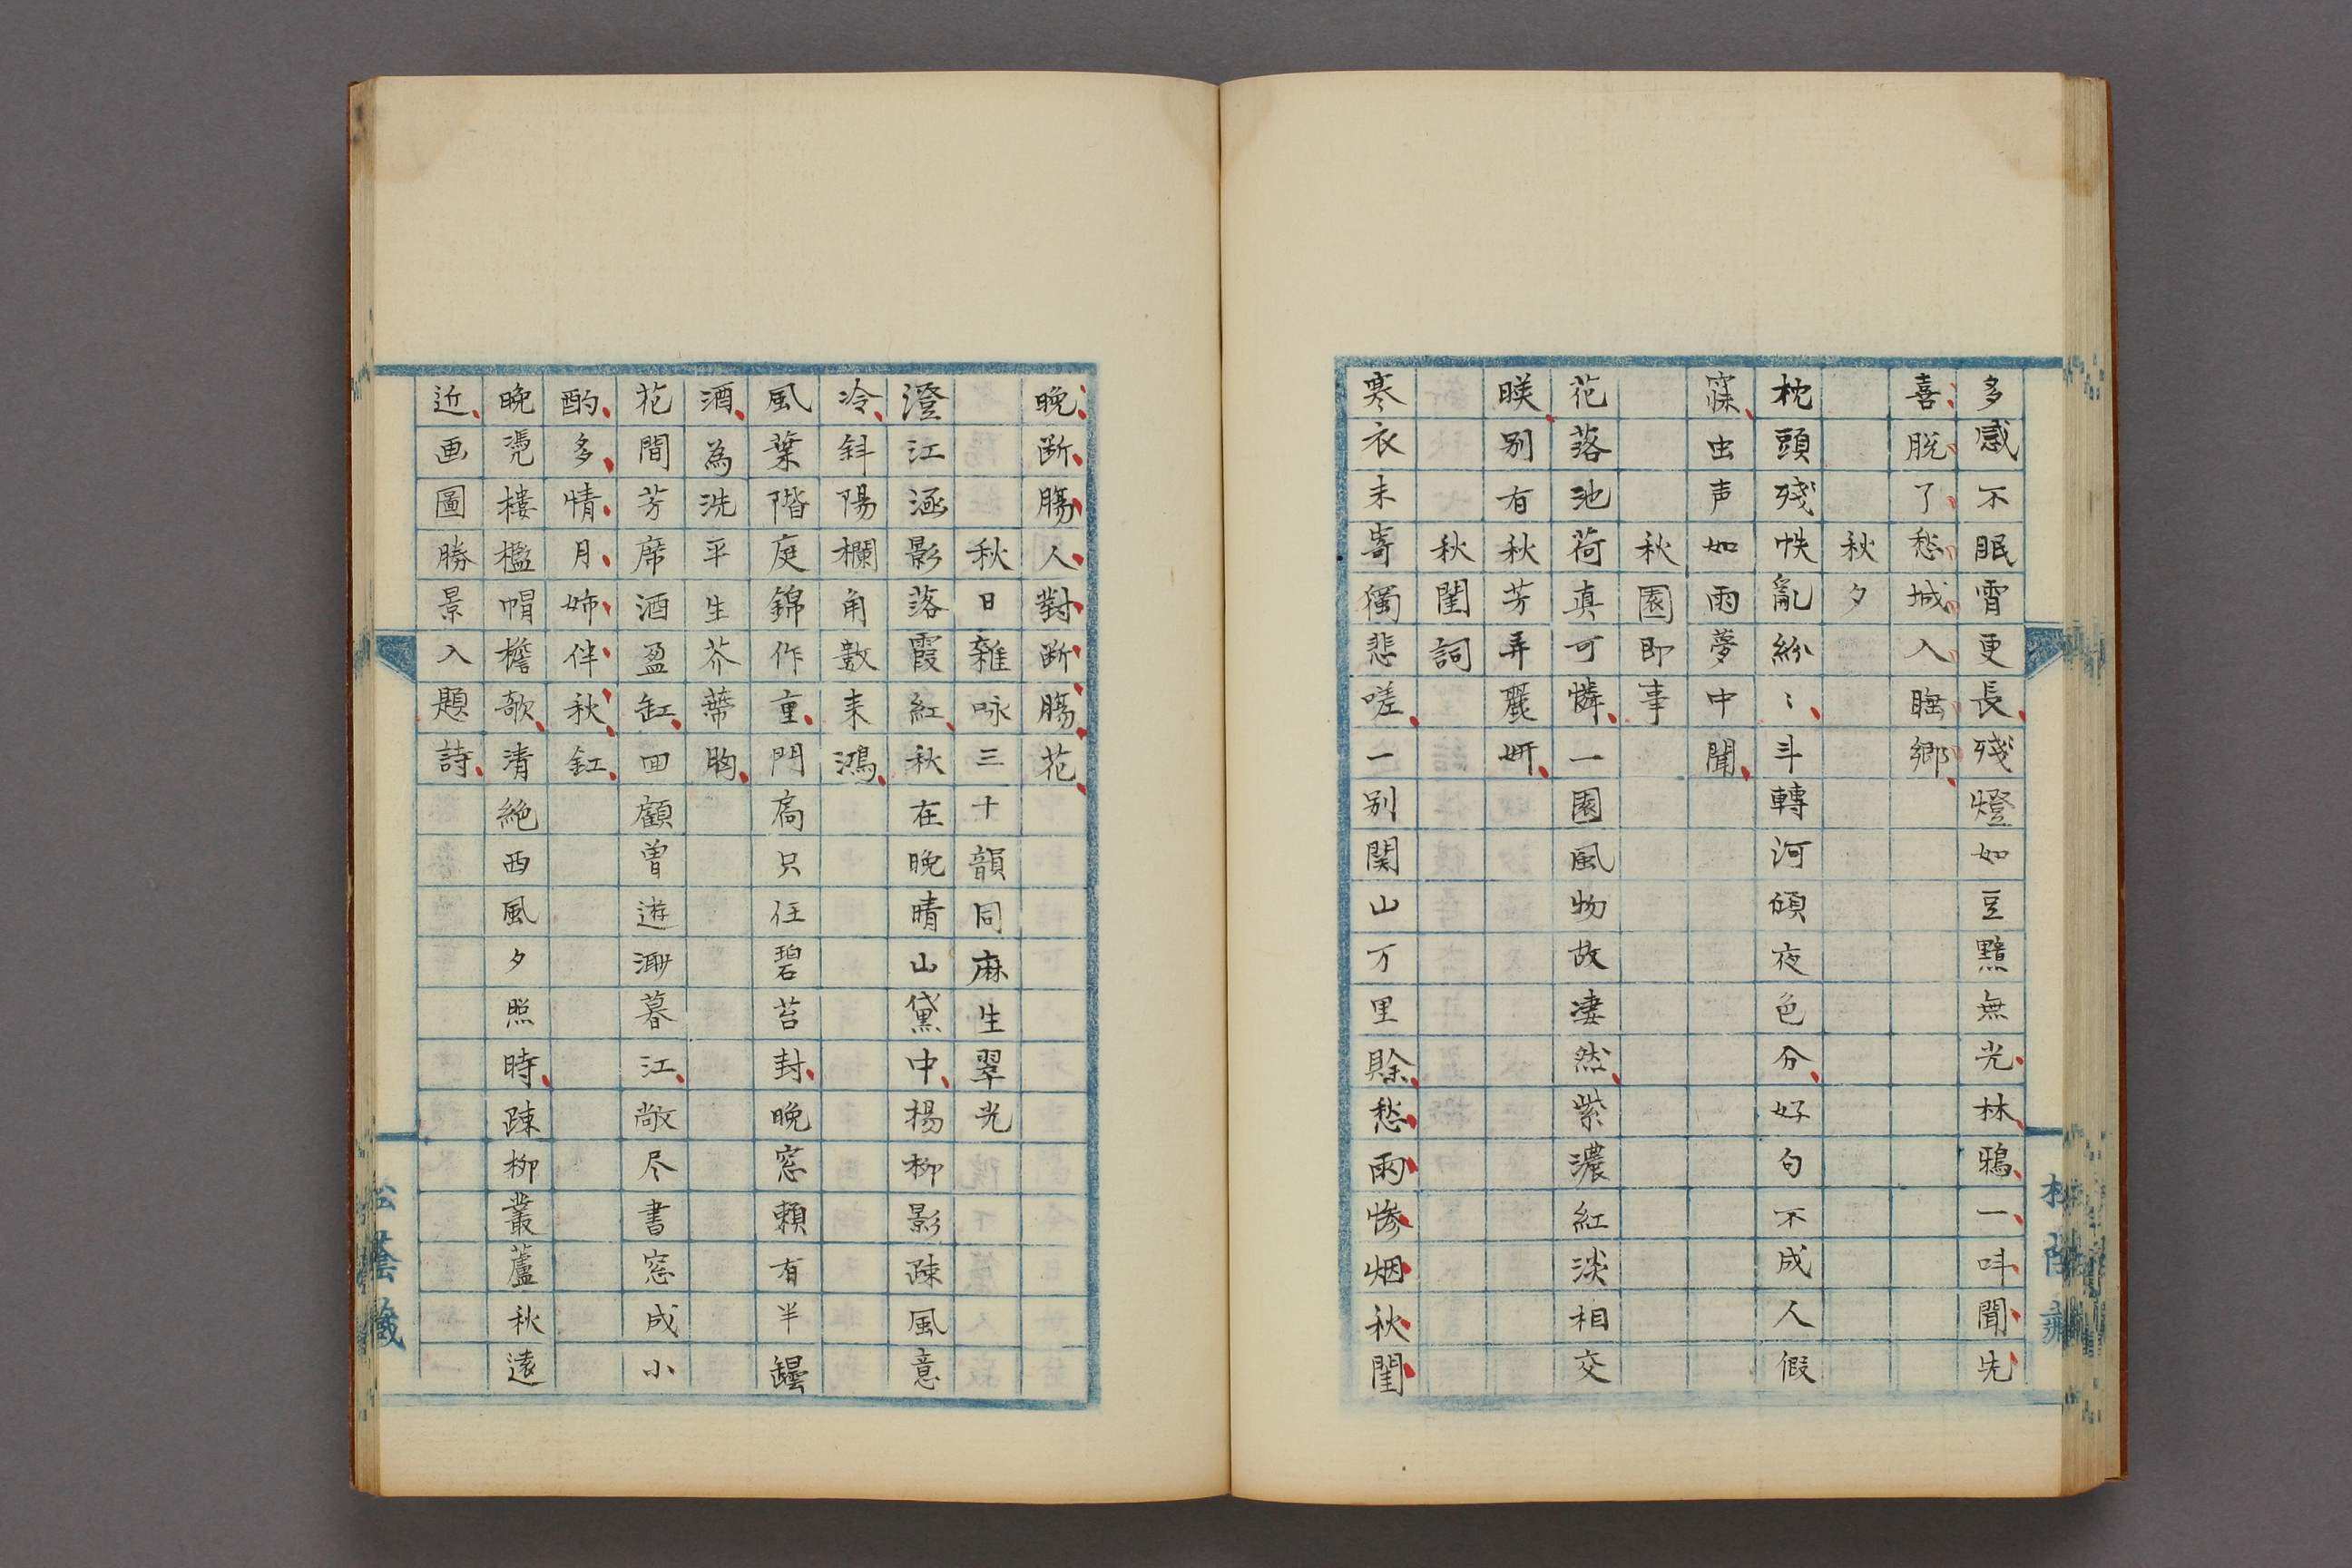 多感不眠霄更長殘燈如豆黯無光林鴉一呌聞先
喜脱了愁城入睡鄉
秋夕
枕頭殘帙亂紛〻斗轉河傾夜色分好句不成人假
寐虫声如雨夢中聞
秋園即事
花落池荷真可憐一園風物故凄然紫濃紅淡相交
暎別有秋芳弄麗妍
秋閨詞
寒衣未寄獨悲嗟一別関山万里賖愁雨惨烟秋閨
晩断腸人對断腸花
秋日雜咏三十韻同麻生翠光
澄江涵影落霞紅秋在晩晴山黛中楊柳影踈風意
冷斜陽欄角数来鴻
風葉階庭錦作重門高只任碧苔封晩窓頼有半罎
酒為洗平生芥蔕胸
花間芳席酒盈缸囬顧曽遊渺暮江敞尽書窓成小
酌多情月姉伴秋釭
晩凭楼檻帽檐欹清絶西風夕照時踈栁叢蘆秋遠
近画圖勝景入題詩
松蔭蔵